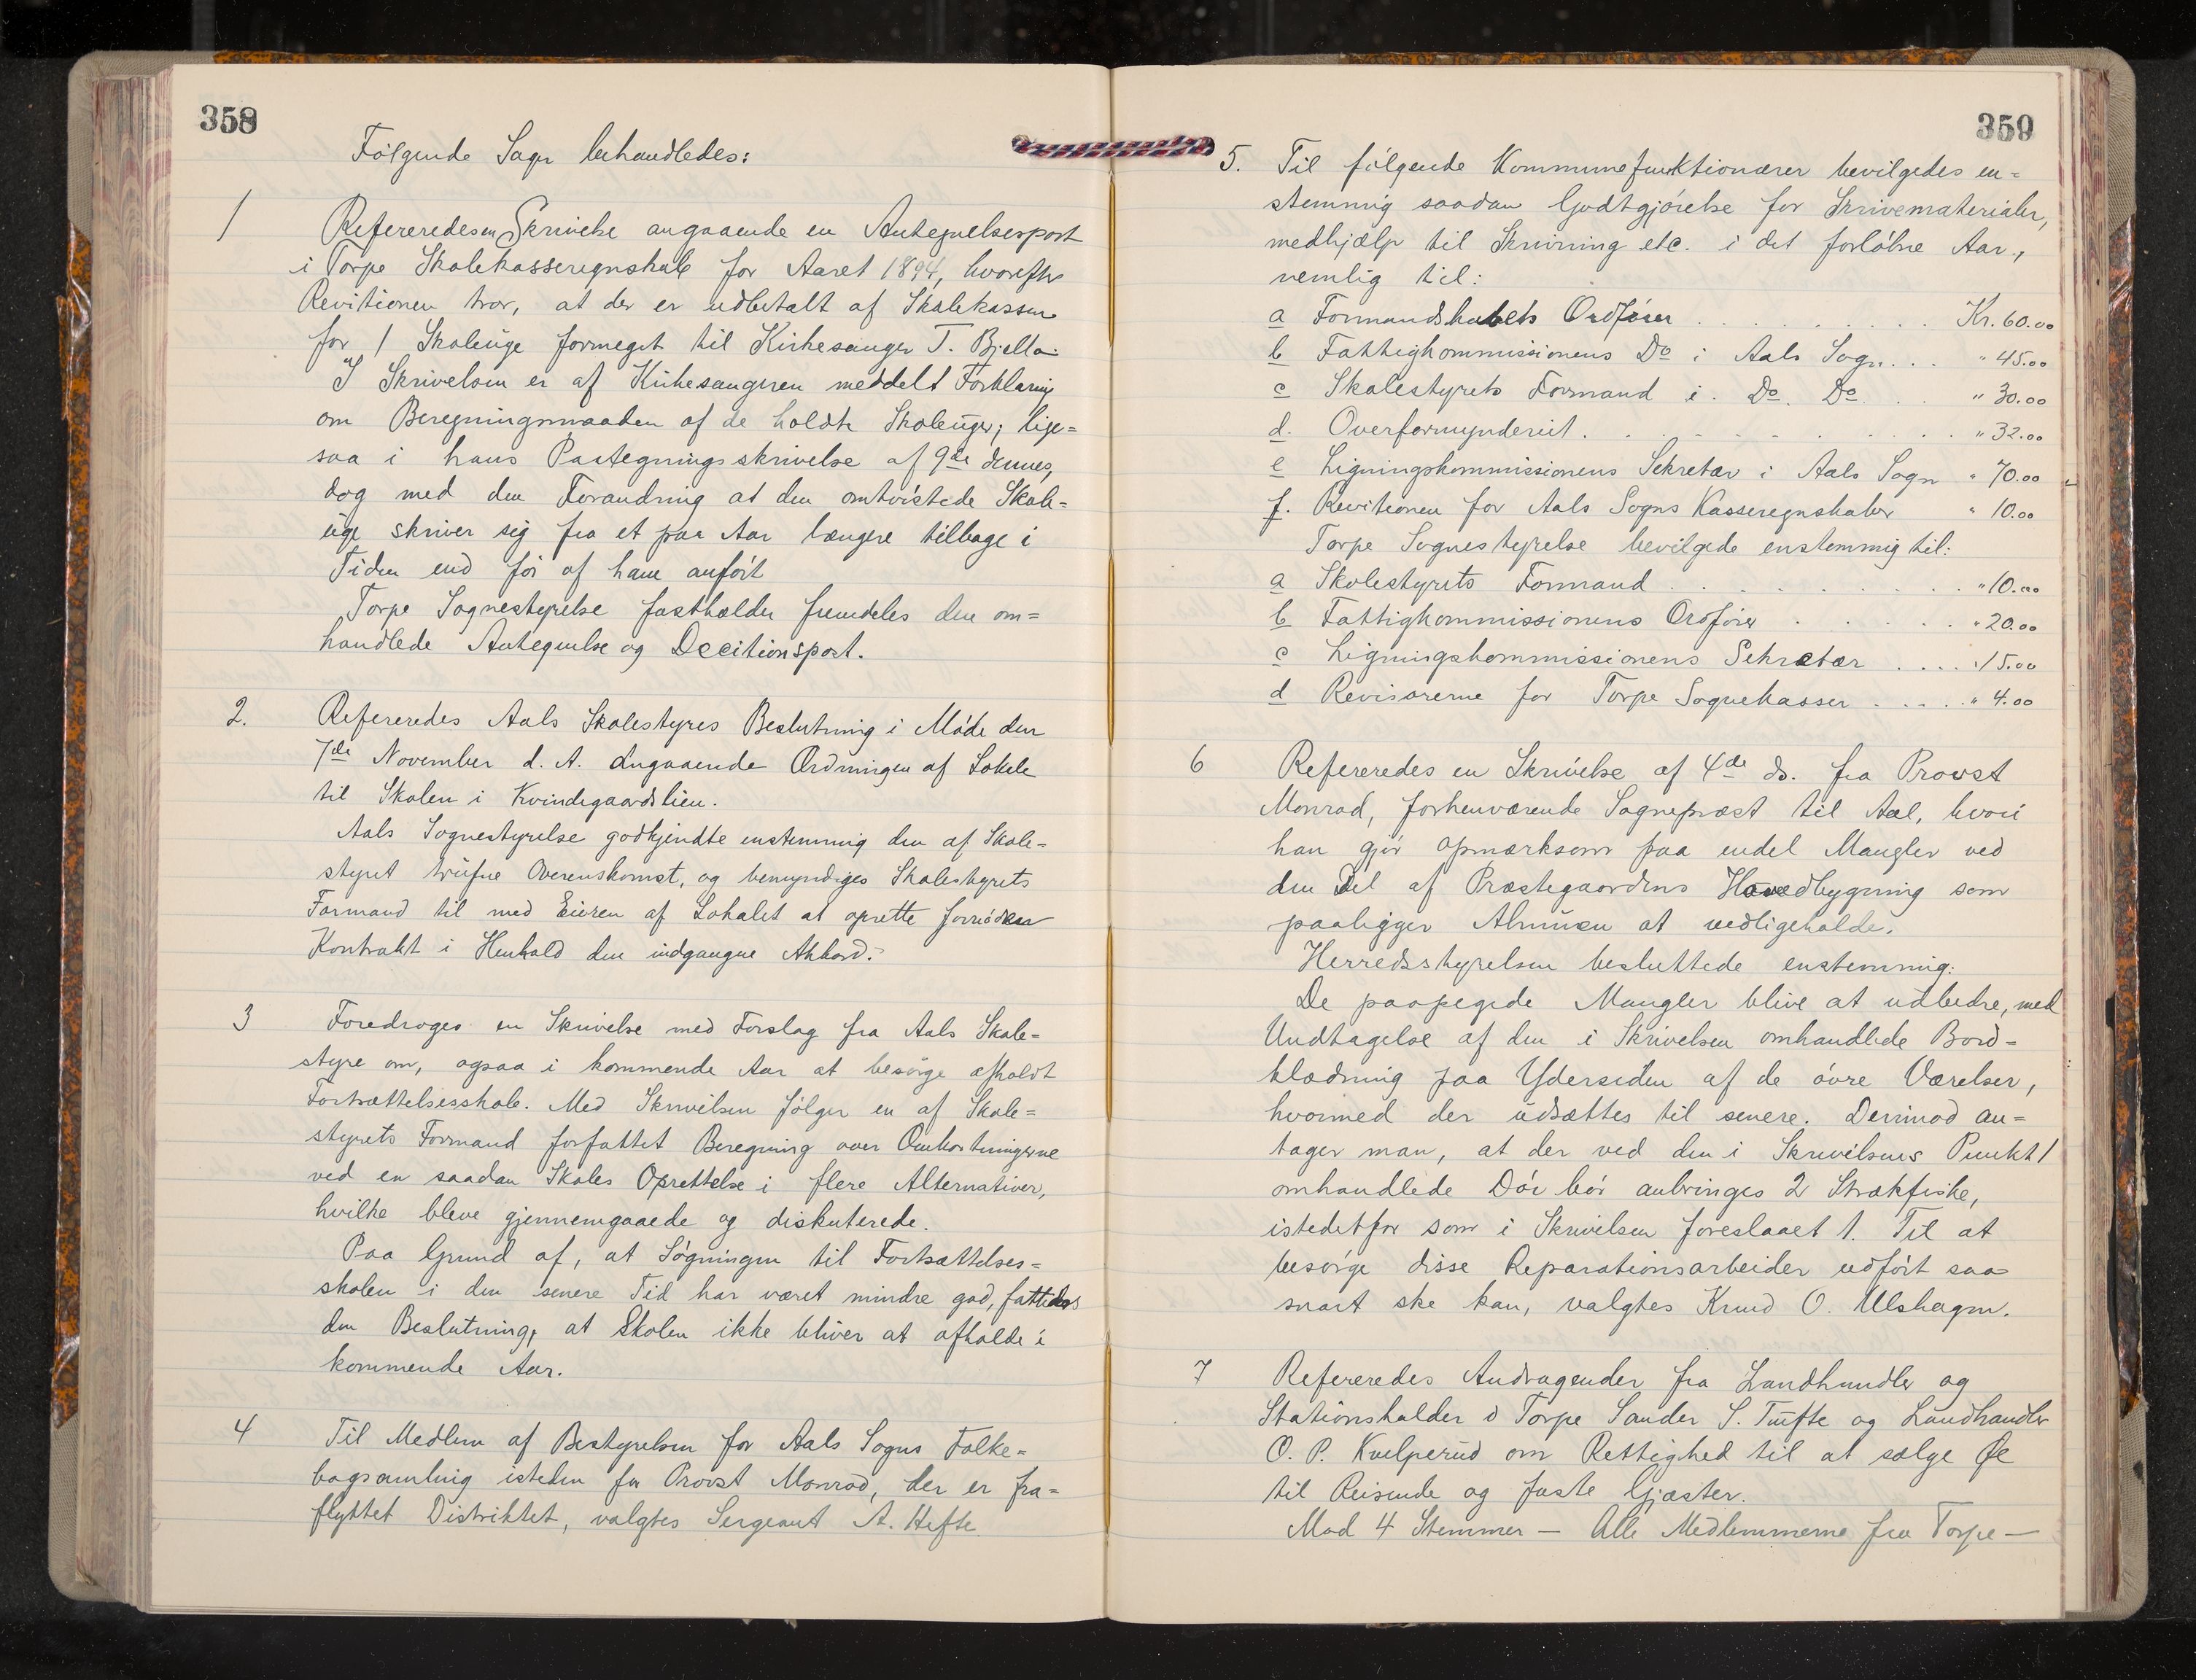 358
Følgende Sager behandledes:
1 Refereredes en Skrivelse angaaende en Antegnelsespost
i Torpe Skolekasseregnskab for Aaret 1894, hvorefter
Revitionen tror, at der er udbetalt af Skolekassen
for 1 Skoleuge formeget til Kirkesanger T. Bjella.
I Skrivelsen er af Kirkesangeren meddelt Forklaring
om Beregningsmaaden af de holdte Skoleuger; lige=
saa i hans Paategningsskrivelse af 9de dennes,
dog med den Forandring at den omtvistede Skole=
uge skriver sig fra et par Aar længere tilbage i
Tiden end før af ham anført
Torpe Sognestyrelse fastholder fremdeles den om=
handlede Antegnelse og Decitionspost.
2. Refereredes Aals Skolestyres Beslutning i Møde den
7de November d. A. angaaende Ordningen af Lokale
til Skolen i Kvindegaardslien.
Aals Sognestyrelse godkjendte enstemmig den af Skole-
styret trufne Overenskomst, og bemyndiges Skolestyrets
Formand til med Eieren af Lokalet at oprette fornøden
Kontrakt i Henhold den indgaagne Akkord.
3 Foredroges en Skrivelse med Forslag fra Aals Skole=
styre om, ogsaa i kommende Aar at besørge afholdt
Fortsættelsesskole. Med Skrivelsen følger en af Skole=
styrets Formand forfattet Beregning over Omkostningerne
ved en saadan Skoles Oprettelse i flere Alternativer,
hvilke bleve gjennemgaaede og diskuterede.
Paa Grund af, at Søgningen til Fortsættelses=
skolen i den senere Tid har været mindre god, fattedes
den Beslutning, at Skolen ikke bliver at afholde i
kommende Aar.
4 Til Medlem af Bestyrelsen for Aals Sogns Folke=
bogsamling isteden for Provst Monrad, der er fra=
flyttet Distriktet, valgtes Sergeant A. Hefte
359
5. Til følgende Kommunefunktionærer bevilgedes en=
stemmig saadan Godtgjørelse for Skrivematerialer,
medhjælp til Skrivning etc. i det forløbne Aar,
nemlig til:
a Formandskabets Ordfører . . . . . . . . . . Kr. 60.00
b Fattigkommissionens Do i Aals Sogn . . . " 45.00
c Skolestyrets Formand i. Do. Do . . . " 30.00
d. Overformynderiet . . . . . . . . . . " 32.00
e Ligningskommissionens Sekretær i Aals Sogn " 70.00
f. Revitionen for Aals Sogns Kasseregnskaber " 10.00
Torpe Sognestyrelse bevilgede enstemmig til:
a Skolestyrets Formand . . . . . . . . . . " 10.00
b Fattigkommissionens Ordfører . . . . . " 20.00
c Ligningskommissionens Sekretær . . . . " 15.00
d Revisorerne for Torpe Sognekasser . . . . . " 4.00
6 Refereredes en Skrivelse af 4de ds. fra Provst
Monrad, forhenværende Sogneprest til Aal, hvori
han gjør opmærksom paa endel Mangler ved
den Del af Præstegaardens Hovedbygning som
paaligger Almuen at vedligeholde.
Herredsstyrelsen besluttede enstemmig:
De paapegede Mangler blive at udbedre, med
Undtagelse af den i Skrivelsen omhandlede Bord-
klædning paa Ydersiden af de øvre Værelser,
hvormed der udsættes til senere. Derimod an=
tager man, at der ved den i Skrivelsens Punkt 1
omhandlede Dør bør anbringes 2 Strækfiske,
istedetfor som i Skrivelsen foreslaaet 1. Til at
besørge disse Reparationsarbeider udført saa
snart ske kan, valgtes Knud O. Ulshagen.
7 Refereredes Andragender fra Landhandler og
Stationsholder i Torpe Sander S. Tufte og Landhandler
O. P. Kvelprud om Rettighed til at sælge Øl
til Reisende og faste Gjæster.
Mod 4 Stemmer — Alle Medlemmerne fra Torpe —